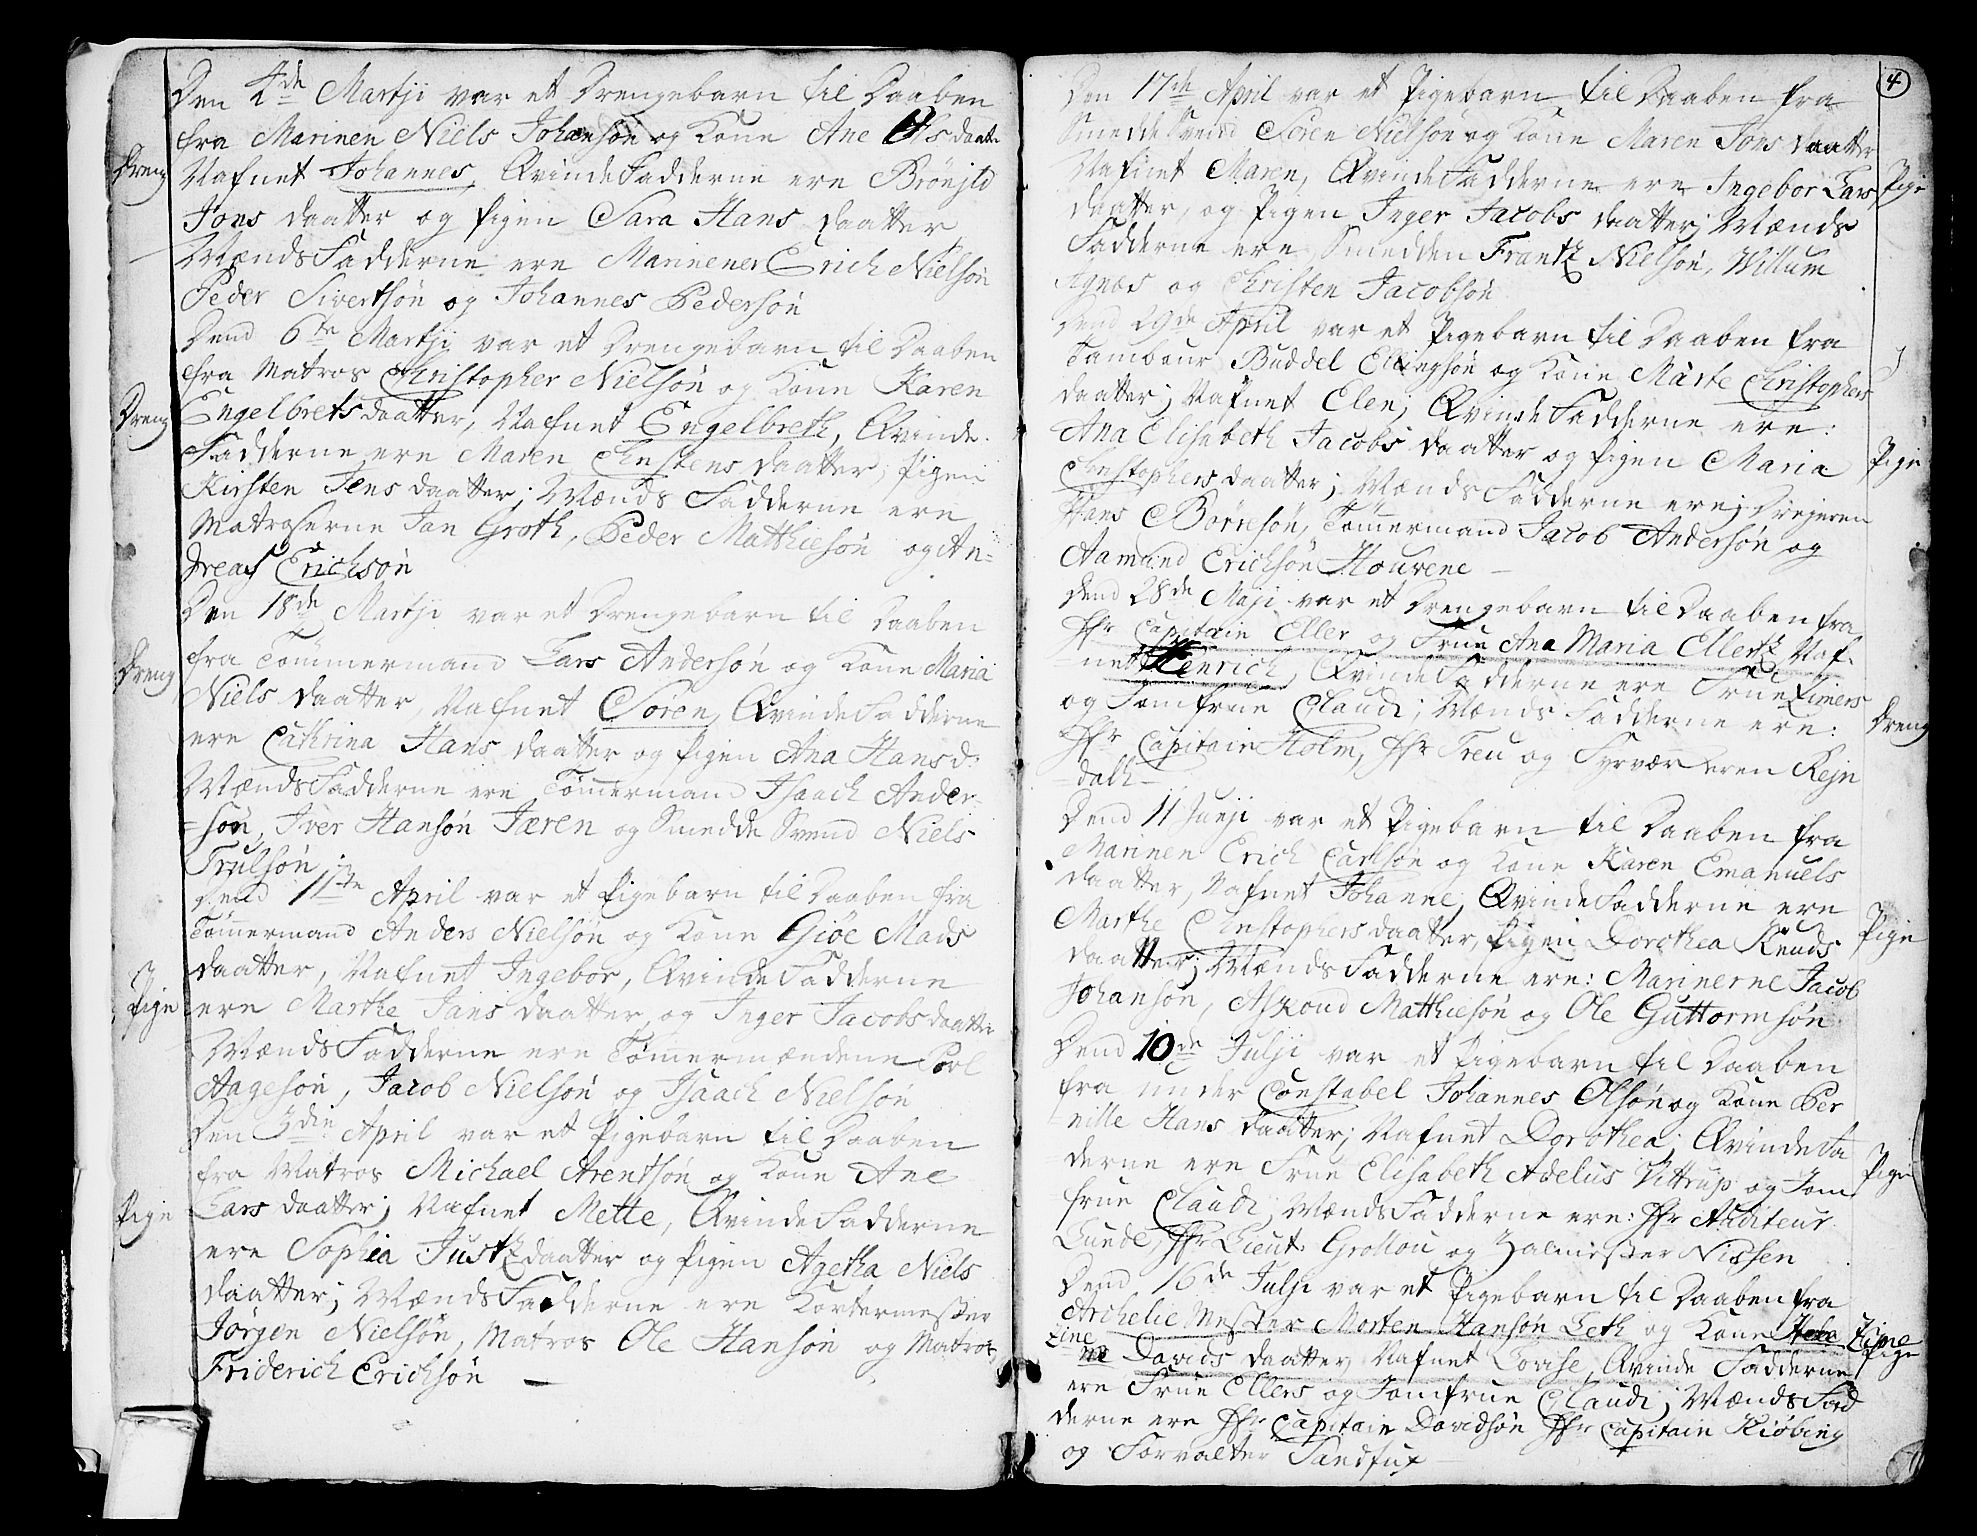 Den 4de Martji var et Drengebarn til Daaben
fra Marinen Niels Johansøn og Kone Ane Ols daatter
Dreng
Nafnet Johannes, QvindeFadderne ere Brönild
Jons daatter og Pigen Sara Hans daatter
MændsFadderne ere Marinener Erich Nielsøn
Peder Sivertsøn og Johannes Pedersøn
Dend 6te Martji var et Drengebarn til Daaben
fra Matros Christopher Nielsøn og Kone Karen
Dreng
Engelbrets daatter, Nafnet Engelbreth, Qvinde-
Fadderne ere Maren Christens daatter, Pigen
Kirsten Jens daatter; Mænds Fadderne ere
Matroserne Jan Groth, Peder Matthiesøn og An-
dreas Erichsøn
Den 18de Martji var et Drengebarn til Daaben
fra Tømmermand Lars Andersøn og Kone Maria
Dreng
Niels daatter, Nafnet Søren, QvindeFadderne
ere Cathrina Hans daatter og Pigen Ana Hansd:
MændsFadderne ere Tømmermand Isaach Ander-
-søn, Iver Hansøn Jæren og Smedde Svend Niels
Trulsøn
Dend 11te April var et Pigebarn til Daaben fra
Tømmermand Anders Nielsøn og Kone Giøe Mads
daatter, Nafnet Ingebor, QvindeFadderne
Pige
ere Marthe Jans daatter og Inger Jacobs daatter
MændsFadderne ere Tømmermændene Poel
Aagesøn, Jacob Nielsøn og Isaach Nielsøn
Den 3die April var et Pigebarn til Daaben
fra Matros Michael Arentsøn og Kone Ane
Pige
Lars daatter; Nafnet Mette, QvindeFadderne
ere Sophia Justz daatter og Pigen Agetha Niels
daatter; MændsFadderne ere Kortermester
Jørgen Nielsøn, Matros Ole Hansøn og Matros
Friderich Erichsøn
4
Den 17de April var et Pigebarn til Daaben fra
Smedde Svend Søren Nielsøn og Kone Maren Jons daatter
Nafnet Maren, QvindeFadderne ere Ingebor Lars
Pige
daatter, og Pigen Inger Jacobs daatter; Mænds
Fadderne ere Smedden Frantz Nielsøn, Willum
Agnes og Christen Jacobsøn
Dend 29de April var et Pigebarn til Daaben fra
Tambour Buddel Ellingsøn og Kone Marte Christophers
daatter; Nafnet Elen; QvindeFadderne ere:
Ana Elisabeth Jacobs daatter og Pigen Maria
Pige
Christophers daatter; MændsFadderne ere; Drejeren
Hans Børresøn, Tømmermand Jacob Andersøn og
Aamund Erichsøn Houvene
Dend 28de Maji var et Drengebarn til Daaben fra
Hr Capitain Eller og Frue Ana Maria Ellertz Naf-
net Henrich, QvindeFadderne ere Frue Zimers
og Jomfrue Claudi; Mænds Fadderne ere:
Dreng
Hr Capitain Holm, Hr Treu og Fyrværeren Rejn
-dalh
Dend 11 Junji var et Pigebarn til Daaben fra
Marinen Erich Carlsøn og Kone Karen Emanuels
daatter, Nafnet Johanne, QvindeFadderne ere
Marthe Christophers daatter, Pigen Dorothea Knuds
Pige
daatter; MændsFadderne ere: Marinerne Jacob
Johansøn, Matthiesøn og Ole Guttormsøn
Dend 10de Julji var et Pigebarn til Daaben
fra under Constabel Johannes Olsøn og Kone Per
nille Hans daatter; Nafnet Dorothea; QvindeFa
derne ere Frue Elisabeth Adelus Vittrup og Jom
Pige
frue Claudi; MændsFadderne ere: Hr Auditeur
Lunde, Hr Lieut. Grollou og Nissen
Dend 16de Julji var et Pigebarn til Daaben fra
Archelie Mester Morten Hansøn Leth og Kone
Davids daatter, Nafnet Lovise, Qvinde Fadderne
Pige
ere Frue Ellers og Jomfrue Claudi; MændsFad
derne ere Hr Capitain Davidsøn Hr Capitain Kiøbing
og Forvalter Sandfux